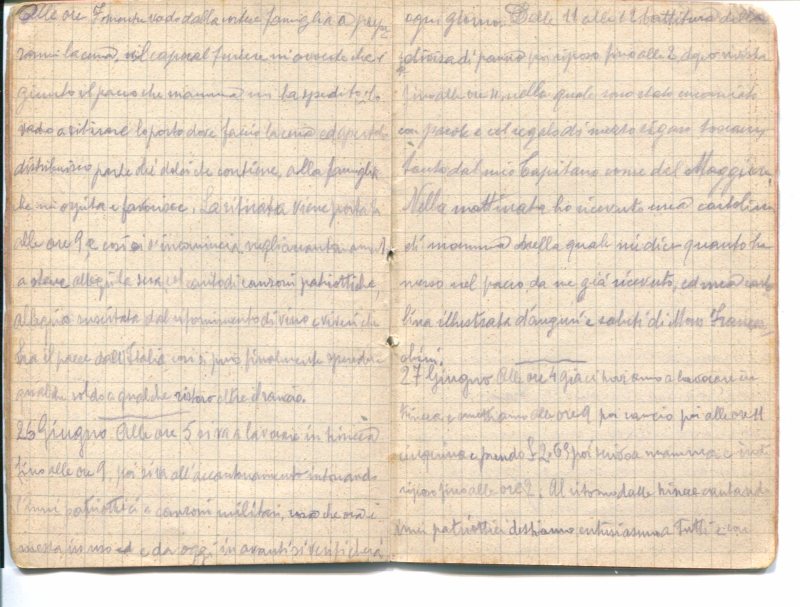 Alle ore 7 mentre vado dalla solita famiglia a
la cena, il caporal furiere mi avverte che è
giunto il pacco che mamma mi ha spedito. Lo
vado a ritirare lo porto dove faccio la cena ed apertolo
distribuisco parte dei dolci che contiene, alla famiglia
che mi ospita e favorisce. La ritirata viene portata
alle ore 9 e così si incomincia
a stare allegri la sera, col canto di canzoni patriottiche,
allegria suscitata dal rifornimento di vino e viveri che
fra il paese dall'Italia così si può finalmente spendere
qualche soldo a qualche ristoro oltre il rancio.
26 Giugno Alle ore 5 si va a lavorare in trincea
fino alle ore 9, poi si va all'accantonamento intonando
l'inni patriottici e canzoni militari, uso che ora è
messo in uso ed e da oggi in avanti si verificherà
ogni giorno. Dalle 11 alle 12 battitura della
divisa di panno poi riposo fino alle 2, dopo rivista
fino alle ore nella quale sono stato encomiato
con parole e col regalo di mezzo sigaro toscano,
tanto dal mio Capitano come del Maggiore.
Nella mattinata ho ricevuto una cartolina
di mamma nella quale mi dice quanto ha
messo nel pacco da me già ricevuto, ed una carto
lina illustrata d'auguri e saluti di Moro
27 Giugno Alle ore 4 già ci troviamo a lavorare in
trincea e smettiamo alle ore 9 poi rancio poi alle ore 11
cinquina e prendo £ 2.65 poi scrivo a mamma e
riposo fino alle ore 2. Al ritorno dalle trincee cantando
inni patriottici destiamo entusiasmo a tutti e